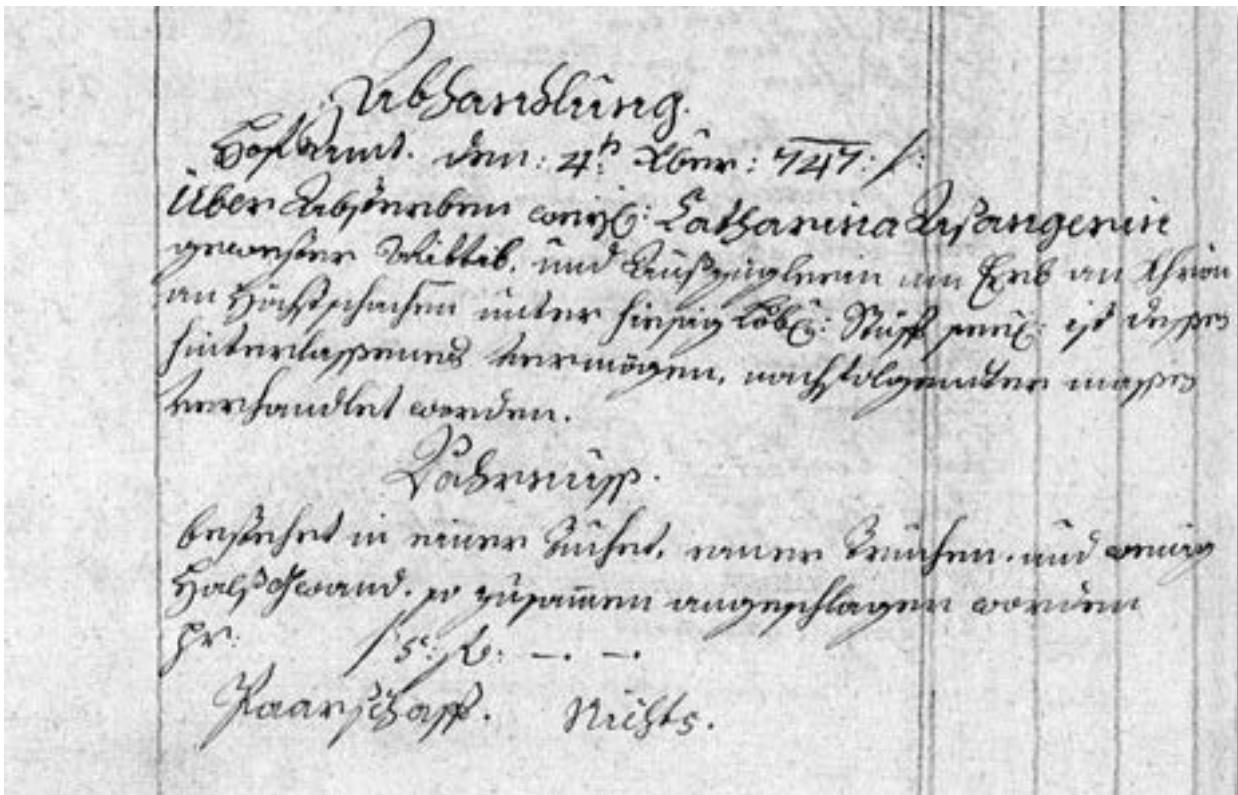 Abhandlung.
Hofambt. den: 4t: Xber: 747: /:
Über Absterben weyl: Catharina Aßangerin
gewester Wittib, und Außzüglerin am Erb an
an Höchstschachen unter hiesig Löbl: Stüfft ist desßen
hinterlaßenes Vermögen, nachfolgendter massen
verhandlet worden.
Vahrnuß.
bestehet in einer einer Truchen, und wenig
Halß Gwand. so zusamen angeschlagen worden
pr: / 5: fl: —. —.
Paarschafft. Nichts.